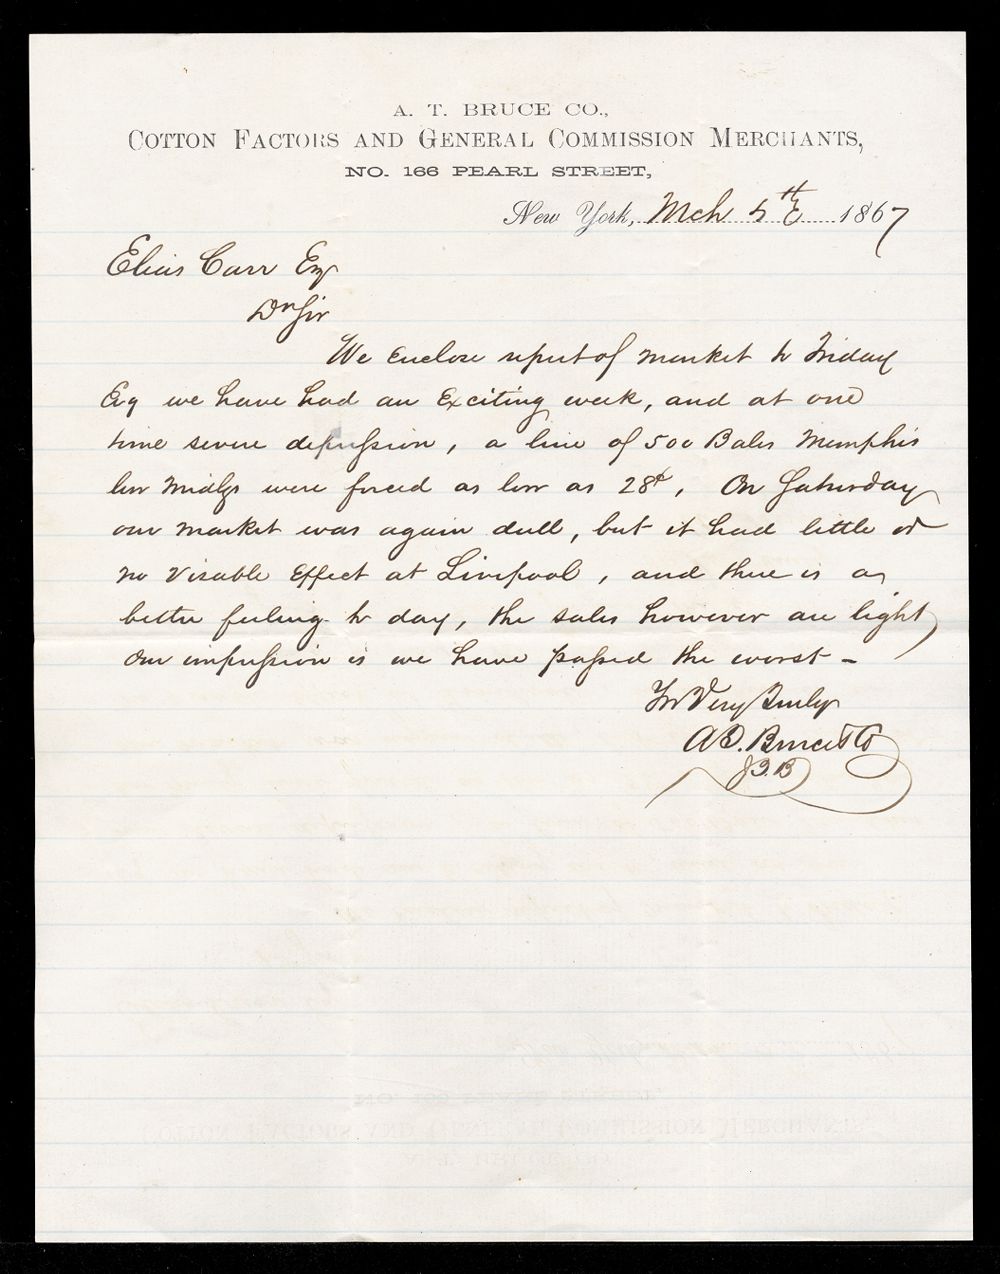 A. T. BRUCE CO.,
COTTON FACTORS AND GENERAL COMMISSION MERCHANTS,
NO. 166 PEARL STREET,
New York, Mch 5th 1867
Elias Carr Esq
Dr Sir
We enclose report of market to Friday
Evg we have had an Exciting week, and at one
time severe depression, a line of 500 Bales Memphis
low Midlgs were forced as low as 28¢, On Saturday
our market was again dull, but it had little or
no Visable Effect at Liverpool, and there is a
better feeling to day, the sales however are light,
Our impression is we have passed the worst -
Yrs Very Truly
A.T. Bruce & Co